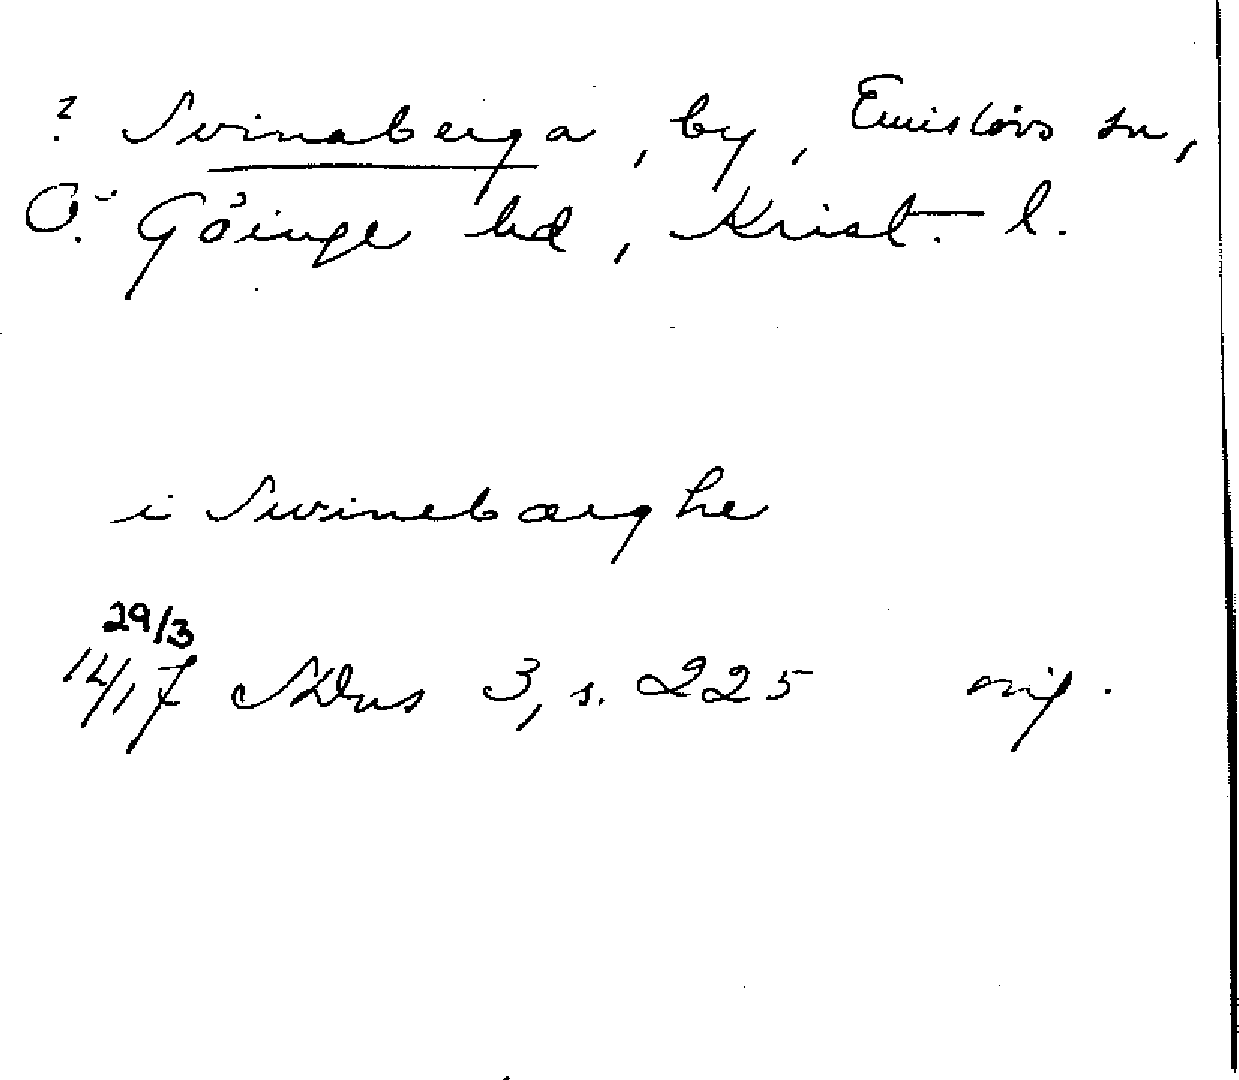 ? Svinaberga, by, Emislövs sn,
Ö. Göinge hd, Krist. l.
i Swinebærghe
29/3
1417 SDns 3, s. 225 orig.